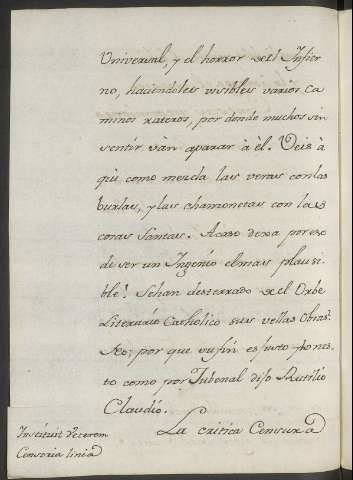 Universal, y el horror del Infier
no, haciendoles visibles varios ca
minos rateros, por donde muchos sin
sentir vàn aparar à èl. Veis à
qùi como mezcla las veras con las
burlas, y las chanzonetas con las
cosas Santas. Acaso dexa por eso
de ser un Ingenio el mas plausi
ble? Sehan desterrado del Orbe
Literario Catholico sus vellas Obras?
No; por que su fin es justo y hones
to como por Jubenal dijo Rutilio
Claudio.
La critica Censura
Instituit Veterem
Censoria linea